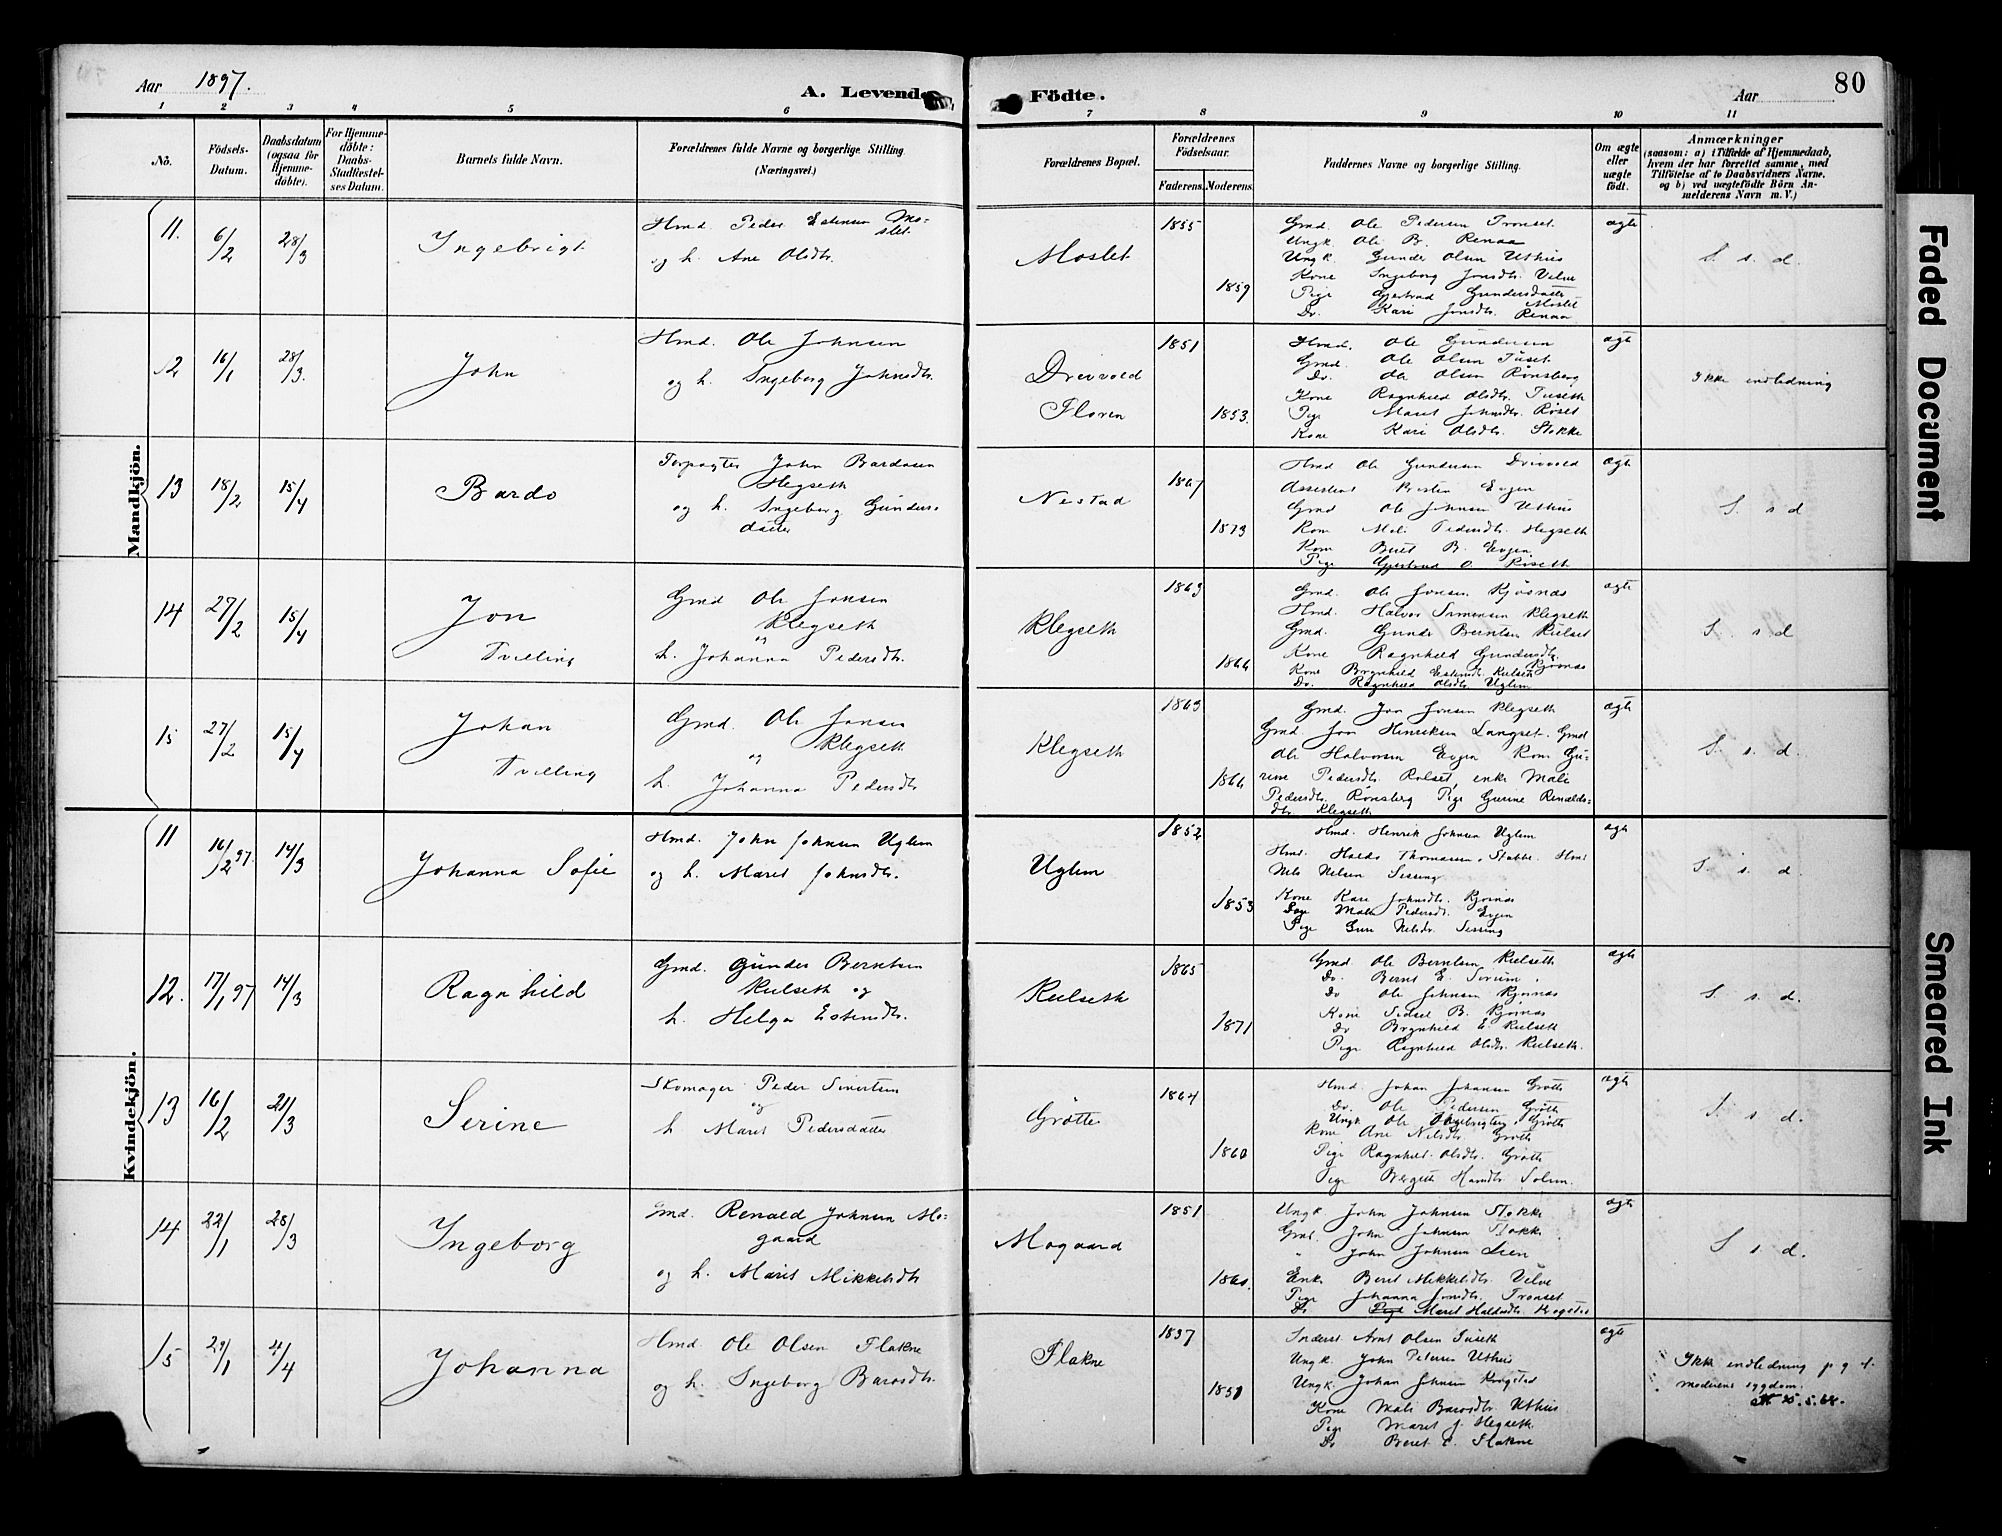 Aar 1897.
A. Levende
Födte.
Aar
80
1 2 3 4 5 6 7 8 9 10 11
No.
Födsels-Datum.
Daabsdatum (ogsaa for Hjemme-döbte).
For Hjemme-döbte: Daabs-Stadfæstel-ses Datum.
Barnets fulde Navn.
Forældrenes fulde Navne og borgerlige Stilling (Næringsvei.)
Forældrenes Bopæl.
Forældrenes Födselsaar.
Faderens. Moderens.
Faddernes Navne og borgerlige Stilling.
Om ægte eller uægte födt.
Anmærkninger
(saasom: a) i Tilfælde af Hjemmedaab, hvem der har forrettet samme, med Tilföielse af to Daabsvidners Navne, og b) ved uægtefödte Börn An-melderens Navn m. V.)
Mandkjön.
11. 6/2 28/3 Ingebrigt
Hmd. Peder Estensen Mo-
slet
og h. Ane Olsdtr.
Moslet
1855
1859
Gmd. Ole Pedersen Tronset
Ungk. Ole B. Renaa
Ungk. Gunder Olsen Uthus
Kone Ingeborg Jonsdtr. Velve
Pige Gjertrud Gundersdatter Moslet
Do. Kari Jonsdtr. Renaa
ægte
S. s. d.
12 16/1 28/3. John
Hmd. Ole Johnsen
og h. Ingeborg Johnsdtr.
Dreivold
Floren
1851
1853.
Hmd. Ole Gundersen
Gmd. Ole Olsen Tuset
Do. Ole Olsen Rønsberg
Kone Ragnhild Olsdtr. Tuseth
Pige Marit Johnsdtr. Røset
Kone Kari Olsdtr. Stokke
ægte
Ikke indledning
13 18/2 15/4 Bardo
Forpagter John Bardosen
Hegseth
og h. Ingeborg Gunders-
datter
Nestad
1867
1873
Hmd Ole Gundersen Dreivold
Assistent Evjen
Gmd Ole Johnsen Uthus
Kone Mali Pedersdtr. Hegseth
Kone Beret B. Evjen
Pige Gjertrud O. Røseth
ægte
S. s d
14 27/2 15/4 Jon
Tvilling
Gmd Ole Jonsen
Klegseth
og
h. Johanna Pedersdtr.
Klegseth
1863
1866
Gmd. Ole Jonsen Kjøsnæs
Hmd. Halvor Simonsen Klegseth
Gmd. Gunder Berntsen Kulset
Kone Ragnhild Gundersdtr. Kjøsnæs
Kone Brynhild Estensdtr. Kulseth
Do. Ragnhild Olsdtr. Uglem
ægte
S. s. d
15 27/2 15/4 Johan
Tvilling
Gmd. Ole Jonsen
Klegseth
og
h. Johanna Pedersdtr
Klegseth
1863
1866
Gmd. Jon Jonsen Klegseth
Gmd. Jon Henriksen Langset. Gmd
Ole Halvorsen Evjen Kone Gu-
rine Pedersdtr. Rolset, enke Mali
Pedersdtr. Rønsberg Pige Gurine Renalds-
dtr. Klegseth
ægte
S. s. d.
Kvindekjön.
11 16/2 97. 14/3 Johanna Sofie
Hmd. John Johnsen Uglem
og h. Marit Johnsdtr.
Uglem
1852
1853
Hmd. Henrik Johnsen Uglem
Hmd. Haldo Thomassen Stubbe. Hmd
Nils Nilsen Sessing
Kone Kari Johnsdtr. Kjøsnæs
Pige Mali Pedersdtr. Evjen
Pige Guri Nilsdtr. Sessing
ægte
S. s. d.
12. 17/1 97 14/3 Ragnhild
Gmd. Gunder Berntsen
Kulseth og
h. Helga Estensdtr.
Kulseth
1865
1871
Gmd. Ole Berntsen Kulseth
Do. Bernt E.
Do Ole Johnsen Kjøsnæs
Kone Sidsel B. Kjøsnæs
Do Brynhild E. Kulseth
Pige Ragnhild Olsdtr. Kulseth.
ægte
S. s. d.
13 16/2 21/3 Serine
Skomager Peder Sivertsen
og
h. Marit Pedersdatter
Grøtte
1864
1860
Hmd. Johan Johansen Grøtte
Do. Ole Pedersen Grøtte
Ungk Ole Ingebrigtsen Grøtte
Kone Ane Nilsdtr. Grøtte
Pige Ragnhild Olsdtr. Grøtte
Pige Bergitte Solem.
ægte
S. s. d.
14 22/1 28/3 Ingeborg
Gmd. Renald Johnsen Mo-
gaard
og h. Marit Mikkelsdtr
Mogaard
1851
1860.
Ungk. John Johnsen Stokke
Gmd. John Johnsen Stokke
" John Johnsen Lien
Enke Beret Mikkelsdtr. Velve
Pige Johanna Jonsdtr. Tronset
Do Pige Marit Haldosdtr. Krogstad
ægte
S s. d.
15 29/1 4/4 Johanna
Hmd. Ole Olsen Flakne
og h. Ingeborg Barosdtr.
Flakne
1837
1851
Inderst Arnt Olsen Tuseth
Ungk. John Petersen Uthus
Ungk Johan Johnsen Krogstad
Kone Mali Barosdtr. Uthus
Pige Marit J. Hegseth
Do Beret E. Flakne
ægte
Ikke indledning p. g. f.
moderens sygdom.
25.5.64.
Faded Document
Smeared Ink